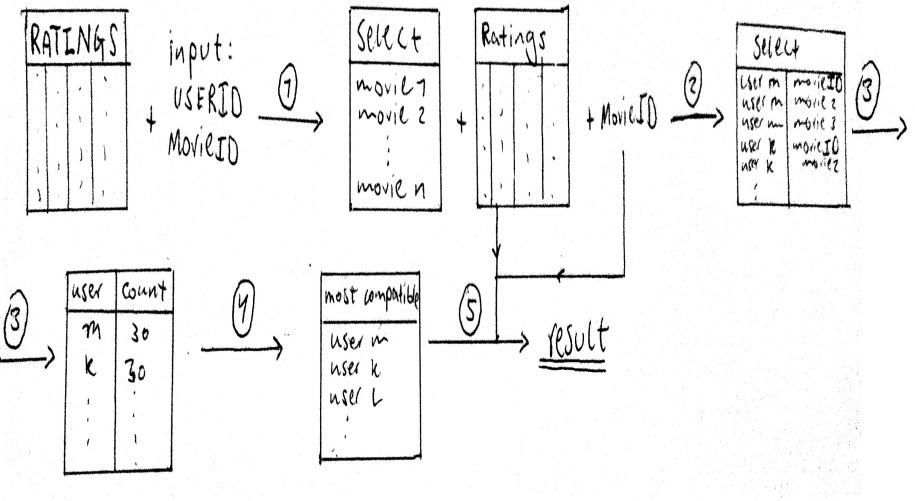 RATINGS
input:
USERID
MovieID
+
1
Select
movie 1
movie 2
movie n
+
Ratings
+ MovieID
2
Select
user m movieID
user m movie 2
user m movie 3
user k movieID
user k movie 2
3
3
user count
m 30
k 30
4
most compatible
user m
user k
user L
5
result